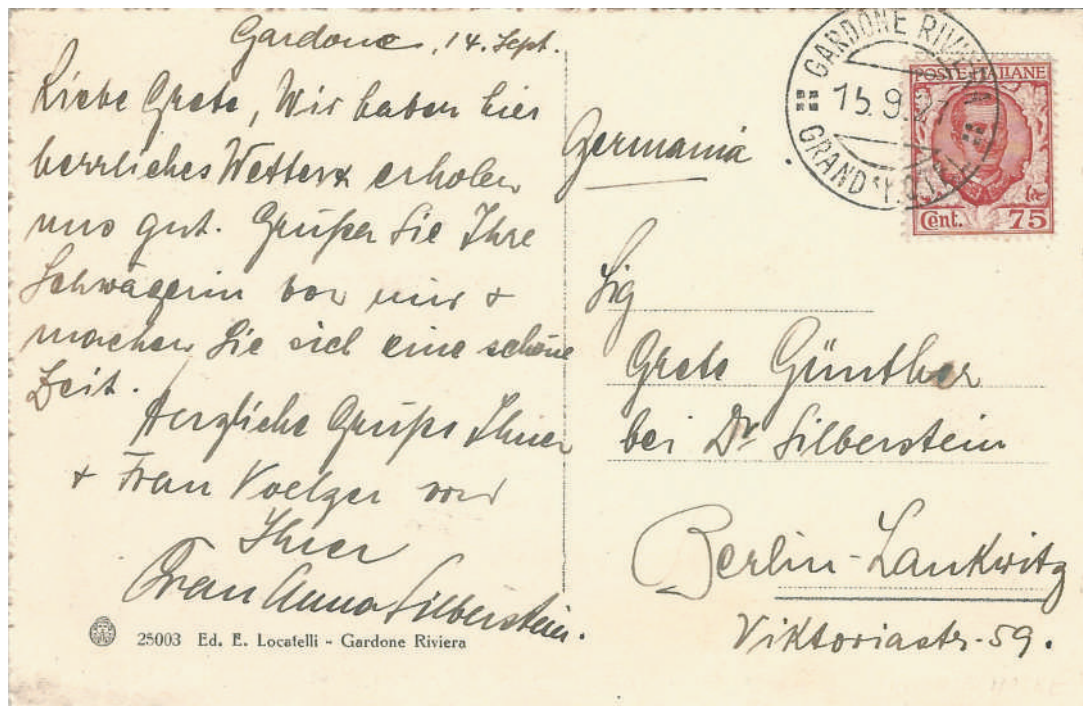 Gardone, 14. Sept.
Liebe Grete, Wir haben hier
herrliches Wetter & erholen
uns gut. Grüßen Sie Ihre
Schwägerin von mir &
machen Sie sich eine schöne
Zeit.
Herzliche Grüße Ihnen
& Frau Voelger von
Ihrer
Frau Anna Silberstein.
25003 Ed. E. Locatelli - Gardone Riviera
GARDONE RIVIERA
15.9.2
GRAND HOTEL
POSTE ITALIANE
Cent. 75
Germania.
Sig
Grete Günther
bei Dr Silberstein
Berlin-Lankwitz
Viktoriastr. 59.